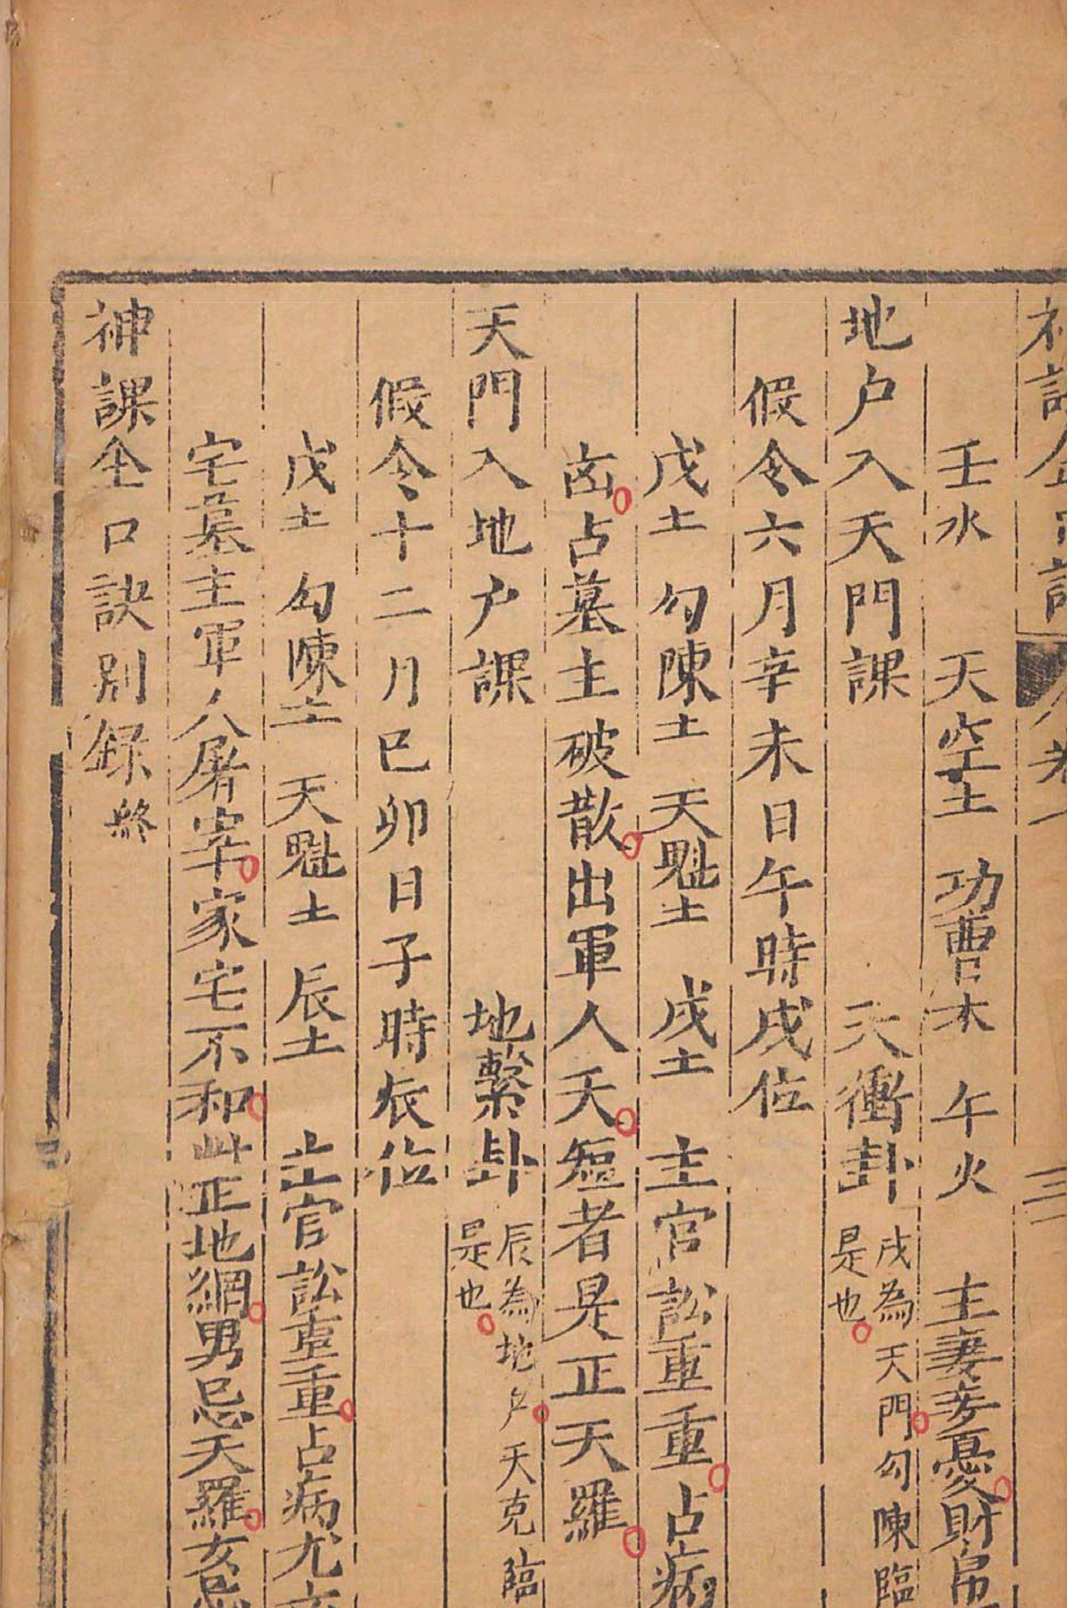 壬水　天空土　功曹木　午火　主妻妾憂財帛
地户入天門課　天衝卦　戌為天門勾陳臨
是也
假令六月辛未日午時戌位
戊土　勾陳土　天魁土　戌土　主官訟重重占病
凶占墓主破散出軍人夭短者是正天羅
天門入地户課　地繫卦　辰為地户天克臨
是也
假令十二月巳卯日子時辰位
戊土　勾陳土　天魁土　辰土　主官訟重重占病尤
宅墓主軍人屠宰家宅不和此正地網男忌天羅女忌
神課金口訣別録終